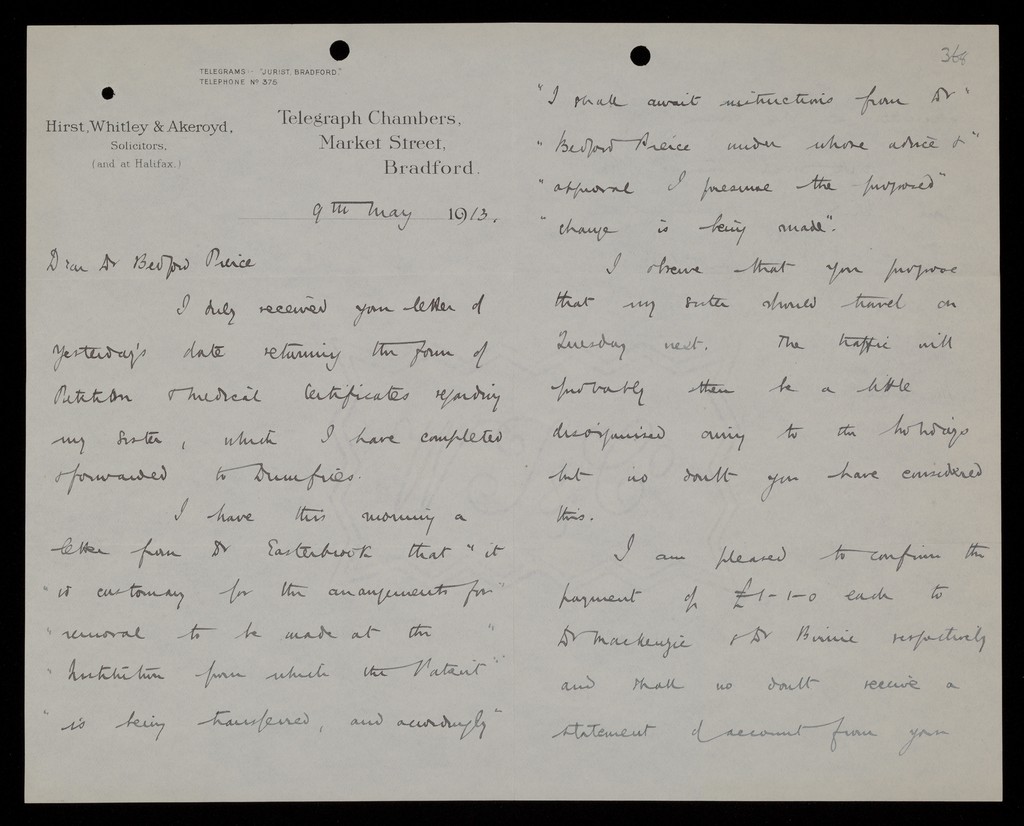 TELEGRAMS :- "JURIST, BRADFORD."
TELEPHONE Nº 375
Hirst, Whitley & Akeroyd,
Solicitors,
(and at Halifax.)
Telegraph Chambers,
Market Street,
Bradford.
9th May 1913.
Dear Dr Bedford Pierce
I duly received your letter of
yesterday's date returning the form of
Petition & medical Certificates regarding
my sister, which I have completed
& forwarded to Dumfries.
I have this morning a
letter from Dr Easterbrook that "it
"is customary for the arrangements for"
"removal to be made at the "
"Institution from which the Patient"
"is being transferred, and accordingly"
368
"I shall await instructions from Dr "
"Bedford Pierce under whose advice & "
"approval I presume the proposed"
"change is being made".
I observe that you propose
that my sister should travel on
Tuesday next. The traffic will
probably then be a little
disorganised owing to the holidays
but no doubt you have considered
this.
I am pleased to confirm the
payment of £1-1-0 each to
Dr Mackenzie & Dr Birnie respectively
and shall no doubt receive a
statement of account from your